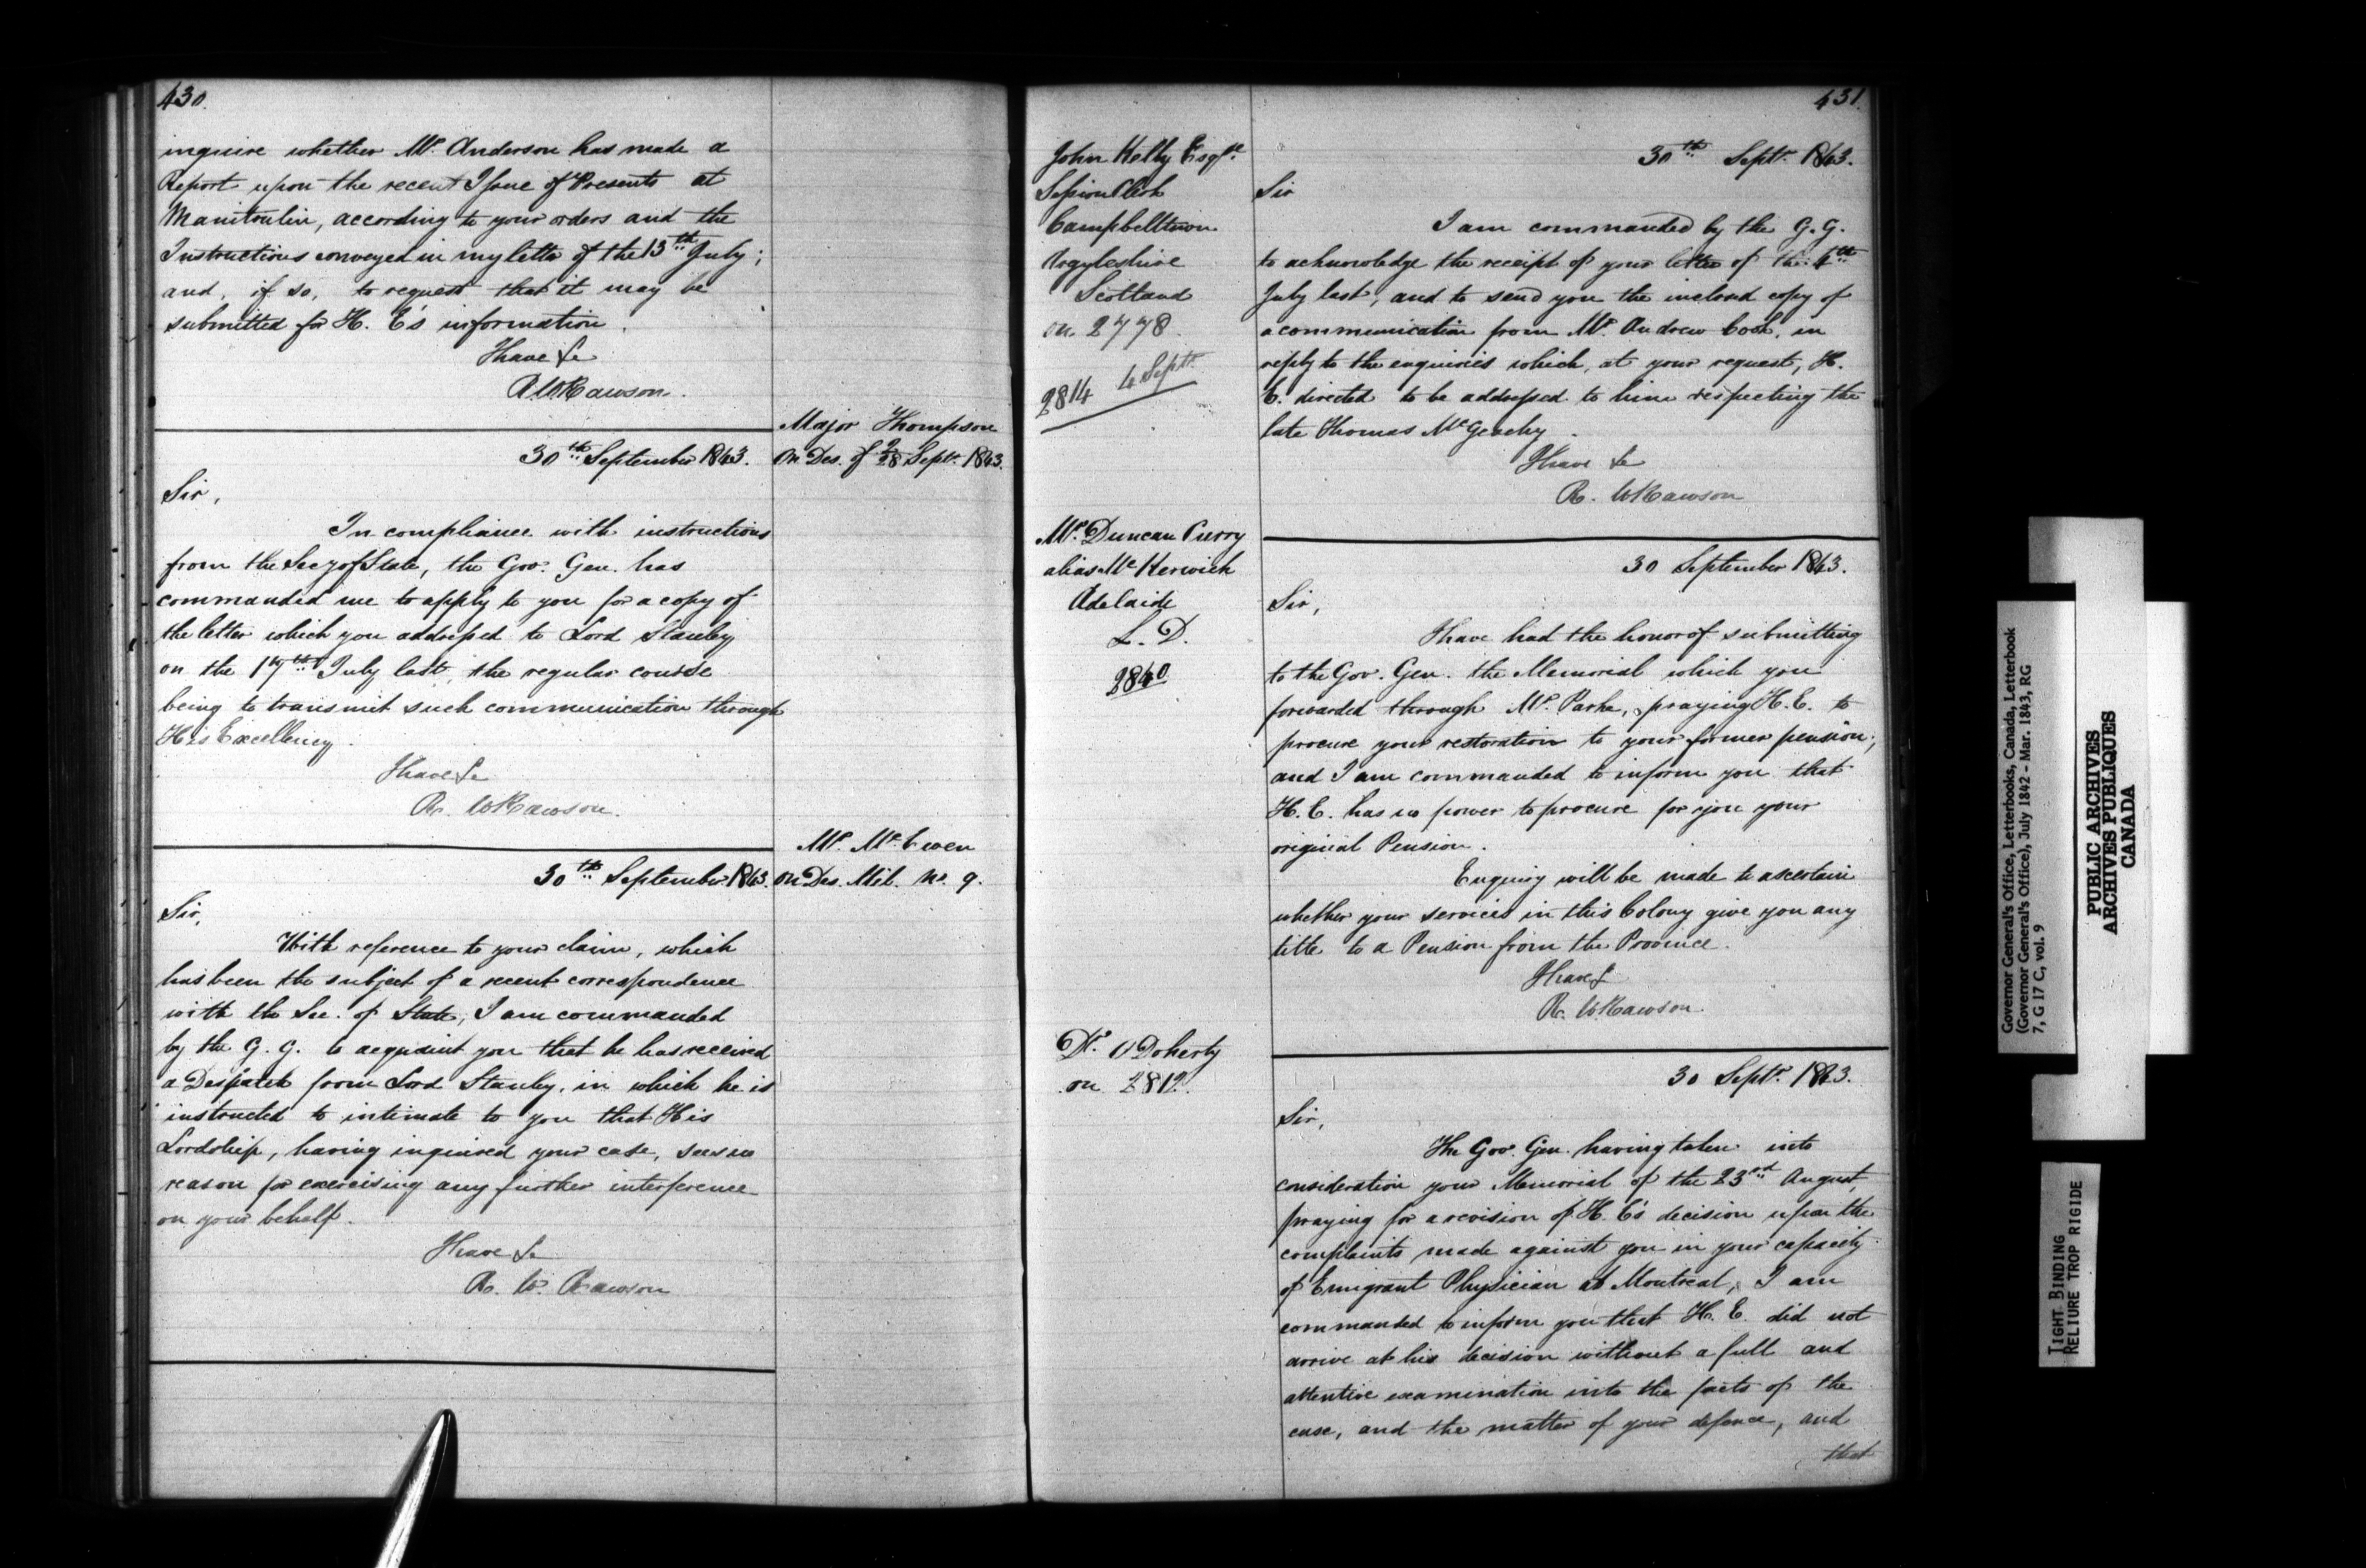 430.
inquire whether Mr. Anderson has made a
Report upon the recent Issue of Presents at
Manitoulin, according to your orders and the
Instructions conveyed in my letter of the 13th July;
and, if so, to request that it may be
submitted for H. E's information.
I have &c
R W Rawson.
Major Thompson
on Des. of Sept. 1843.
30th September 1843.
Sir,
In compliance with instructions
from the Secy of State, the Gov. Gen. has
commanded me to apply to you for a copy of
the letter which you addressed to Lord Stanley
on the 17th July last, the regular course
being to transmit such communication through
His Excellency.
I have &c
R. W Rawson.
Mr. McEwen
on Des. Mil. No. 9.
30th September 1843.
Sir,
With reference to your claim, which
has been the subject of a recent correspondence
with the Sec. of State, I am commanded
by the G. G. to acquaint you that he has received
a Despatch from Lord Stanley, in which he is
instructed to intimate to you that His
Lordship, having inquired your case, sees no
reason for exercising any further interference
on your behalf.
I have &c
R. W. Rawson
431.
John Kelly Esqre
Session Clerk
Campbelltown
Argyleshire
Scotland
on 2778
2814 4 Septr
30th Septr. 1843.
Sir
I am commanded by the G. G.
to acknowledge the receipt of your letter of the 4th
July last, and to send you the inclosed copy of
a communication from Mr. Andrew Cook, in
reply to the enquiries which, at your request, H.
E. directed to be addressed to him respecting the
late Thomas McGeachy.
I have &c
R. W Rawson
Mr. Duncan Curry
alias McKerwick
Adelaide
L. D.
2840
30 September 1843.
Sir,
I have had the honor of submitting
to the Gov. Gen. the Memorial which you
forwarded through Mr. Parke, praying H. E. to
procure your restoration to your former pension;
and I am commanded to inform you that
H. E. has no power to procure for you your
original Pension.
Enquiry will be made to ascertain
whether your services in this Colony give you any
title to a Pension from the Province.
I have &
R. W Rawson.
Dr. O'Doherty
on 2812.
30 Septr. 1843.
Sir,
The Gov. Gen. having taken into
consideration your Memorial of the 23rd August,
praying for a revision of H. E's decision upon the
complaints made against you in your capacity
of Emigrant Physician at Montreal, I am
commanded to inform you that H. E. did not
arrive at his decision without a full and
attentive examination into the facts of the
case, and the matter of your defence, and
that
Governor General's Office, Letterbooks, Canada, Letterbook
(Governor General's Office), July 1842 - Mar. 1843, RG
7, G 17 C, vol. 9
PUBLIC ARCHIVES
ARCHIVES PUBLIQUES
CANADA
TIGHT BINDING
RELIURE TROP RIGIDE